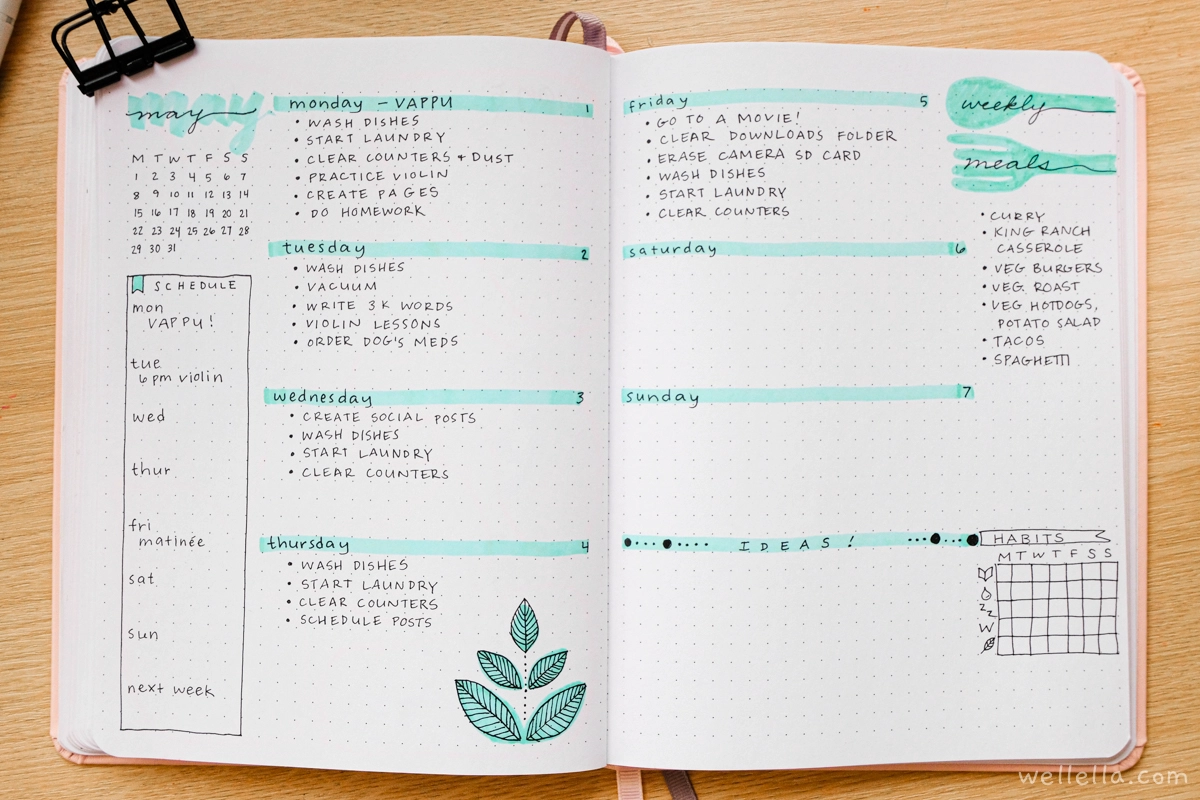 may
M T W T F S S
1 2 3 4 5 6 7
8 9 10 11 12 13 14
15 16 17 18 19 20 21
22 23 24 25 26 27 28
29 30 31
SCHEDULE
mon
VAPPU!
tue
6pm violin
wed
thur
fri
matinée
sat
sun
next week
monday - VAPPU 1
• WASH DISHES
• START LAUNDRY
• CLEAR COUNTERS + DUST
• PRACTICE VIOLIN
• CREATE PAGES
• DO HOMEWORK
tuesday 2
• WASH DISHES
• VACUUM
• WRITE 3K WORDS
• VIOLIN LESSONS
• ORDER DOG'S MEDS
wednesday 3
• CREATE SOCIAL POSTS
• WASH DISHES
• START LAUNDRY
• CLEAR COUNTERS
thursday 4
• WASH DISHES
• START LAUNDRY
• CLEAR COUNTERS
• SCHEDULE POSTS
friday 5
• GO TO A MOVIE!
• CLEAR DOWNLOADS FOLDER
• ERASE CAMERA SD CARD
• WASH DISHES
• START LAUNDRY
• CLEAR COUNTERS
saturday 6
sunday 7
IDEAS!
weekly
meals
• CURRY
• KING RANCH
CASSEROLE
• VEG BURGERS
• VEG. ROAST
• VEG HOTDOGS,
POTATO SALAD
• TACOS
• SPAGHETTI
HABITS
M T W T F S S
zz
W
wellella.com